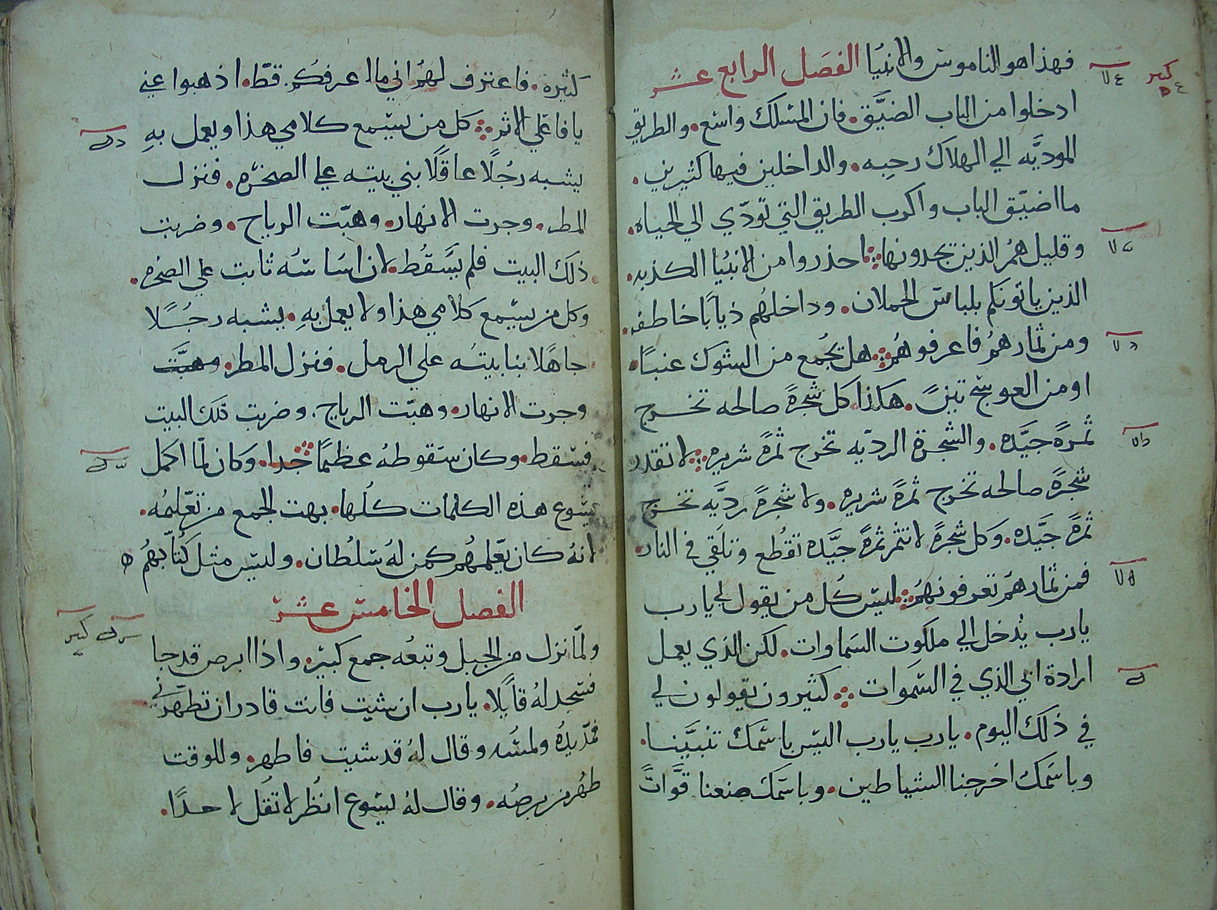 فهذا هو الناموس والانبيا الفصل الرابع عشر
ادخلوا من الباب الضيّق. فان المسلك واسع. والطريق
الموديه الي الهلاك رحبه. والداخلين فيها كثيرين.
ما اضيق الباب واكرب الطريق التي تودّي الي الحياه.
وقليل همُ الذين يجدونها: احذروا من الانبيا الكذبه.
الذين ياتونكم بلباس الحملان. وداخلهُم ذياباً خاطفه.
ومن ثمارهمُ فاعرفوهمُ: هل يجُمع من الشوك عنباً.
او من العوسج تينً. هكذا كل شجرةً صالحه تخرج
ثمرةً جيّده. والشجرة الرديه تخرج ثمرةً شريره: لا تقدر
شجرةً صالحه تخرج ثمرةً شريره. ولا شجرةً رديّه تخرج
ثمرةً جيّده. وكل شجرةً لا تثمر ثمرةً جيّده تقطع وتلقي في النار.
فمن ثمارهمُ تعرفونهمُ: ليس كُل من يقول لي يا رب
يا رب يُدخل الي ملكوت السماوات. لكن الذي يعمل
ارادة ابي الذي في السموات: كثيرون يقولون لي
في ذلك اليوم. يا رب يا رب اليس باسمك تنبيّنا.
وباسمك اخرجنا الشياطين. وباسمك صنعنا قوّاتً
كثيره. فاعترف لهمُ اني ما اعرفكُم قطّ. اذهبوا عني
يا فاعلي الاثم: كل من يسمع كلامي هذا ويعمل بهِ
يشبه رجُلًا عاقلًا بني بيته علي الصخره. فنزل
المطر. وجرت الانهار. وهبّت الرياح. وضربت
ذلك البيت فلم يسَقُط. لان اساسُه ثابت علي الصخره.
وكل من يسمع كلامي هذا ولا يعمل بهِ. يشبه رجُلًا
جاهلًا بنا بيتُه علي الرمل. فنزل المطر. وهبّت
وجرت الانهار. وهبّت الرياح. وضربت ذلك البيت
فسقط. وكان سقوطهُ عظيماً جدا. وكان لمّا اكمل
يسوع هذه الكلمات كُلها. بهت الجمع من تعّليمُه.
لانهُ كان يعّلمهُم كمن لهُ سُلطان. وليس مثل كُتّابهمُ
الفصل الخامس عشر
ولمّا نزل من الجبل وتبعُه جمع كبير. واذا ابرص قد جا
فسجد لهُ قايلًا. يا رب ان شيت فانت قادر ان تطهّرني
فمّد يدهُ ولمسُه وقال لهُ قد شيت فاطهر. وللوقت
طهُر من برصُه. وقال لهُ يسوع انظُر لا تقُل لاحدًا.